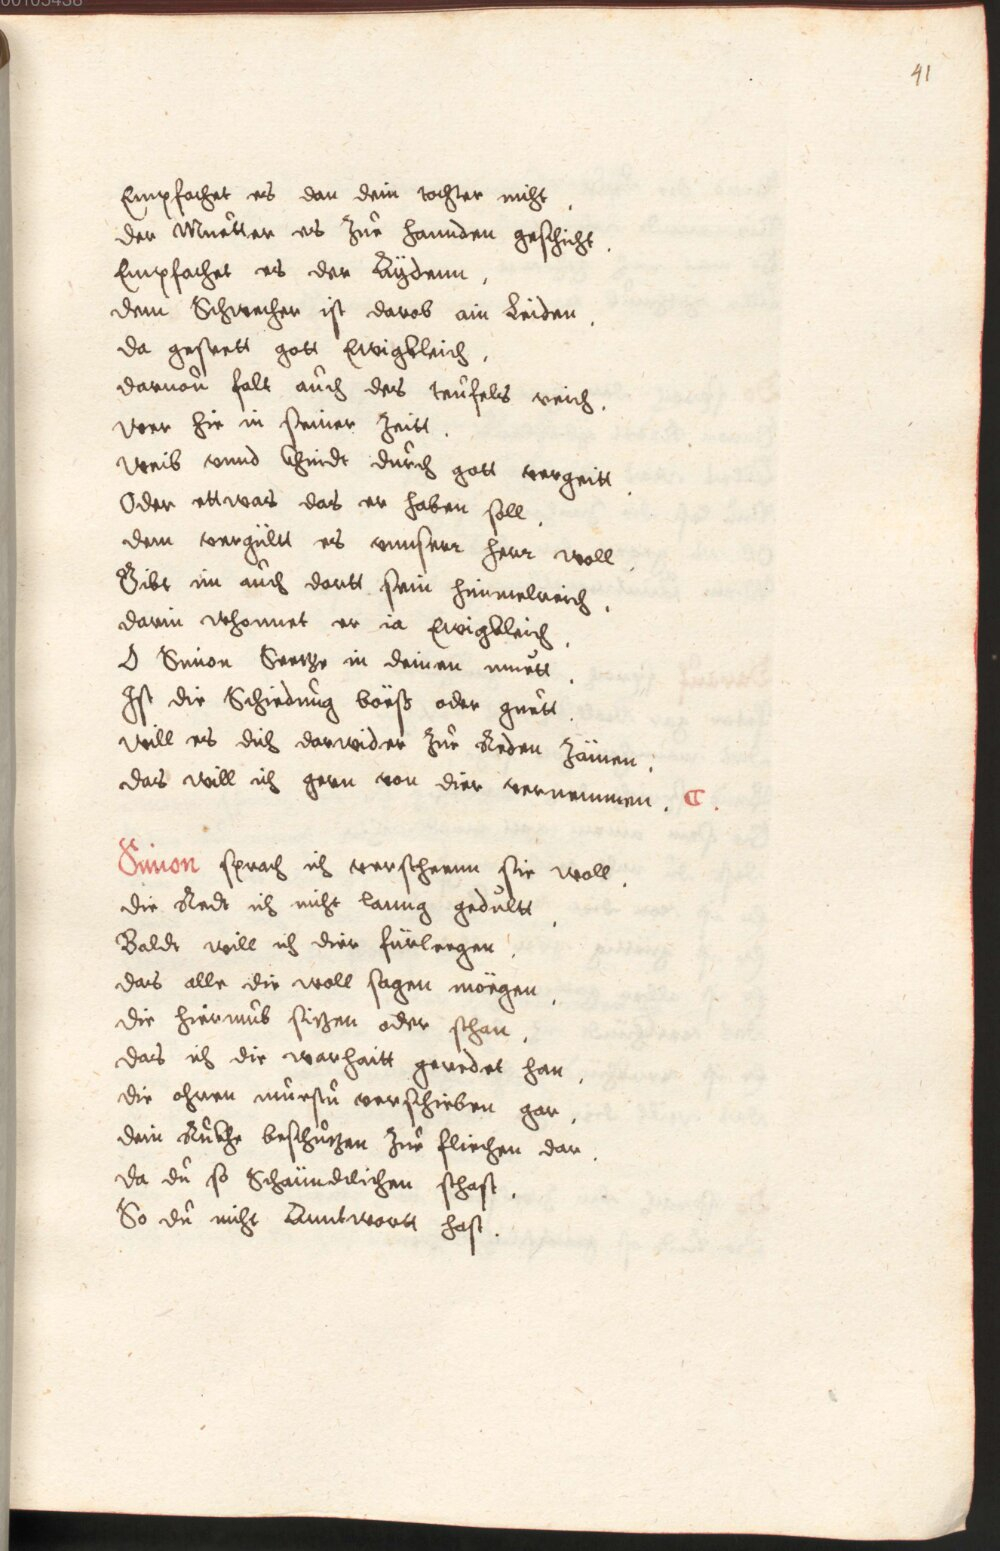 41
Empfachet es dan dein tochter nicht .
der Muetter es Zur hannden geschicht .
Empfachet es der Aÿdenn ,
dem Schwecher ist darob ain Leiden .
da gestett gott Ewigkleich ,
darnon falt auch des teufels reich .
wer hie in seiner Zeitt .
weib vnnd khindt durch gott vergeitt .
Oder ettwas das er haben soll .
dem vergültt es vnnserr herr woll .
Gibt im auch dortt sein himmelreich ,
darin whonnet er ia Ewigkleich .
O Simon Seetze in deinen muett .
Ist die Schiedung böeß oder guett .
will es dich darwider Zur Reden Zämen :
das will ich gern von dier vernemmen .
Simon sprach ich verschenn sie woll .
die Redt ich nicht lanng gedultt .
Baldt will ich dier fürlegen .
das alle die woll sagen möegen .
die hierumb sitzen oder schan ,
das ich die warhaitt geredet han .
die ohren muestu verschieben gar .
dein Rukhe beschutzen Zur fliechen dar .
da du so Schäündtlichen schast .
So du nicht Anntwortt hast .